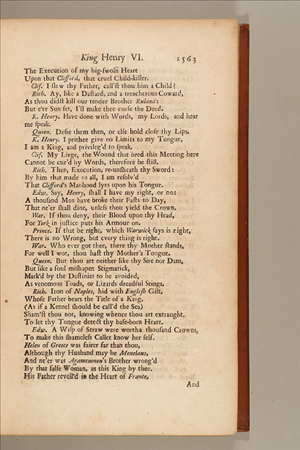 King Henry VI. 1563
The Execution of my big-swoln Heart
Upon that Clifford, that cruel Child-killer.
Clif. I slew thy Father, call'st thou him a Child?
Rich. Ay, like a Dastard, and a treacherous Coward,
As thou didst kill our tender Brother Rutland:
But e'er Sun set, I'll make thee curse the Deed.
K. Henry. Have done with Words, my Lords, and hear
me speak.
Queen. Defie them then, or else hold close thy Lips.
K. Henry. I prithee give no Limits to my Tongue,
I am a King, and priviledg'd to speak.
Clif. My Liege, the Wound that bred this Meeting here
Cannot be cur'd by Words, therefore be still.
Rich. Then, Execution, re-unsheath thy Sword:
By him that made us all, I am resolv'd
That Clifford's Manhood lyes upon his Tongue.
Edw. Say, Henry, shall I have my right, or no?
A thousand Men have broke their Fasts to Day,
That ne'er shall dine, unless thou yield the Crown.
War. If thou deny, their Blood upon thy Head,
For York in justice puts his Armour on.
Prince. If that be right, which Warwick says is right,
There is no Wrong, but every thing is right.
War. Who ever got thee, there thy Mother stands,
For well I wot, thou hast thy Mother's Tongue.
Queen. But thou art neither like thy Sire nor Dam,
But like a foul mishapen Stigmatick,
Mark'd by the Destinies to be avoided,
As venomous Toads, or Lizards dreadful Stings.
Rich. Iron of Naples, hid with English Gilt,
Whose Father bears the Title of a King,
(As if a Kennel should be call'd the Sea)
Sham'st thou not, knowing whence thou art extraught,
To let thy Tongue detect thy base-born Heart.
Edw. A Wisp of Straw were worth a thousand Crowns,
To make this shameless Callet know her self.
Helen of Greece was fairer far than thou,
Although thy Husband may be Menelaus,
And ne'er was Agamemnon's Brother wrong'd
By that false Woman, as this King by thee.
His Father revell'd in the Heart of France,
And